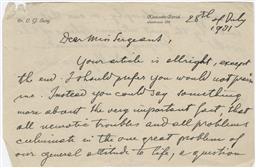 Dr. C. G. Jung
28th of July
1931
Dear Miss Sergeant,
Your article is allright, except
the end. I should prefer you would not praise
me. Instead you could say something
more about the very important fact, that
all neurotic troubles and all problems
culminate in the one great problem of
our general attitude to life, a question